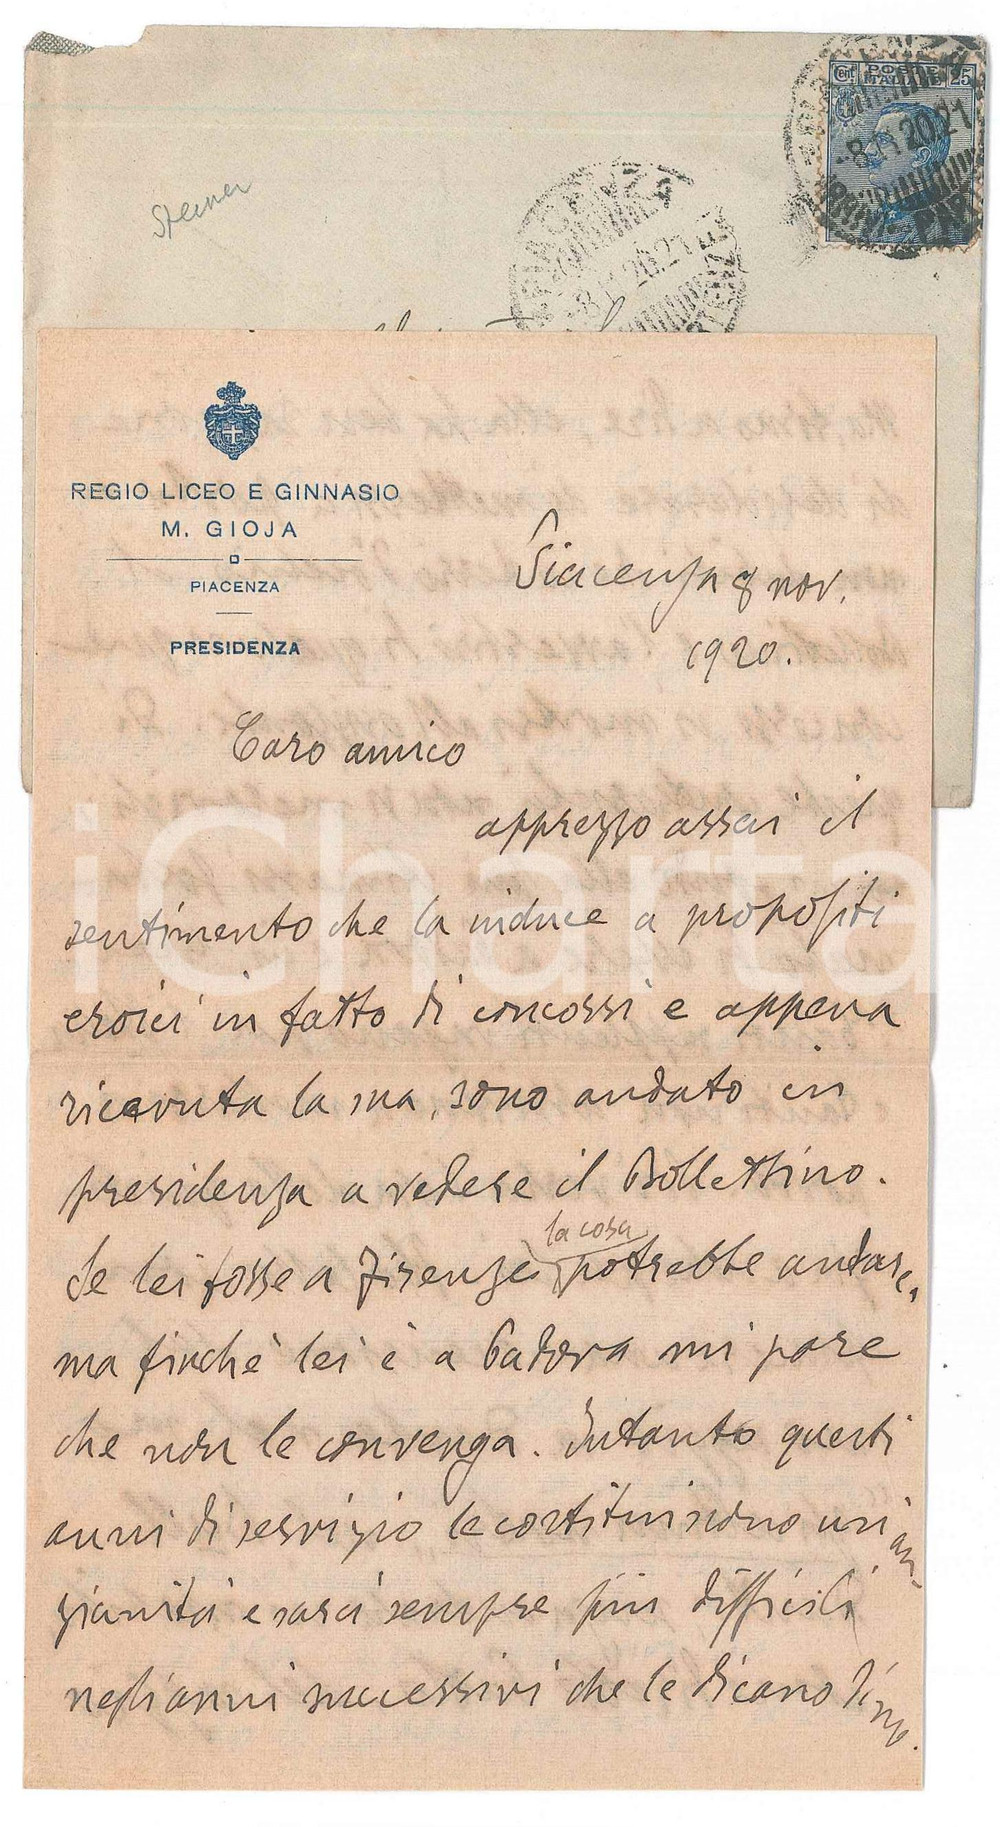 Steiner
Cent POSTE ITALIANE 25
8 20.21
PIACENZA
8 20.21
REGIO LICEO E GINNASIO
M. GIOJA
PIACENZA
PRESIDENZA
Piacenza 8 nov.
1920.
Caro amico
apprezzo assai il
sentimento che la induce a propositi
eroici in fatto di concorsi e appena
ricevuta la sua, sono andato in
presidenza a vedere il Bollettino.
Se lei fosse a Firenze la cosa potrebbe andare,
ma finché lei è a Padova mi pare
che non le convenga. Intanto questi
anni di servizio le costituiscono un'an-
zianità e sarà sempre più difficile
negli anni successivi che le dicano di no.
iCharta